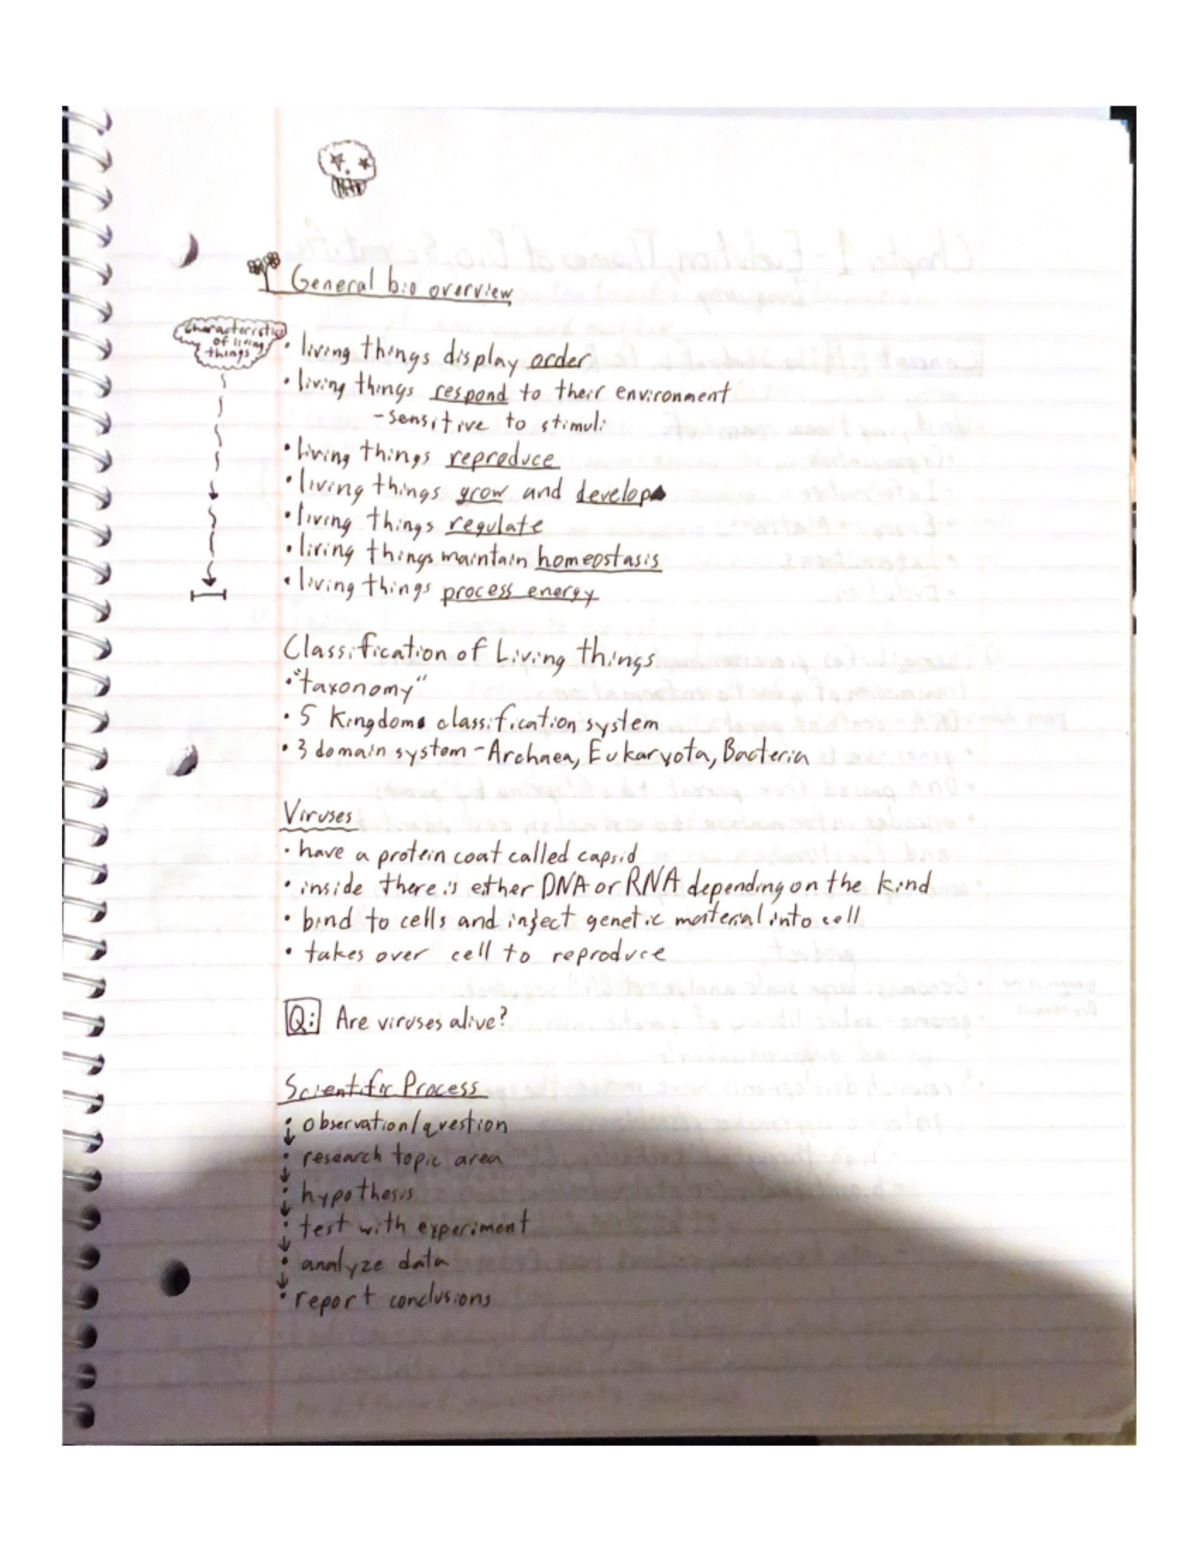 General bio overview
Characteristics
of living
things
• living things display order
• living things respond to their environment
- sensitive to stimuli
• living things reproduce
• living things grow and develop
• living things regulate
• living things maintain homeostasis
• living things process energy
Classification of Living things
• "taxonomy"
• 5 Kingdom classification system
• 3 domain system - Archaea, Eukaryota, Bacteria
Viruses
• have a protein coat called capsid
• inside there is either DNA or RNA depending on the kind
• bind to cells and inject genetic material into cell
• takes over cell to reproduce
Q: Are viruses alive?
Scientific Process
• observation/question
• research topic area
• hypothesis
• test with experiment
• analyze data
• report conclusions